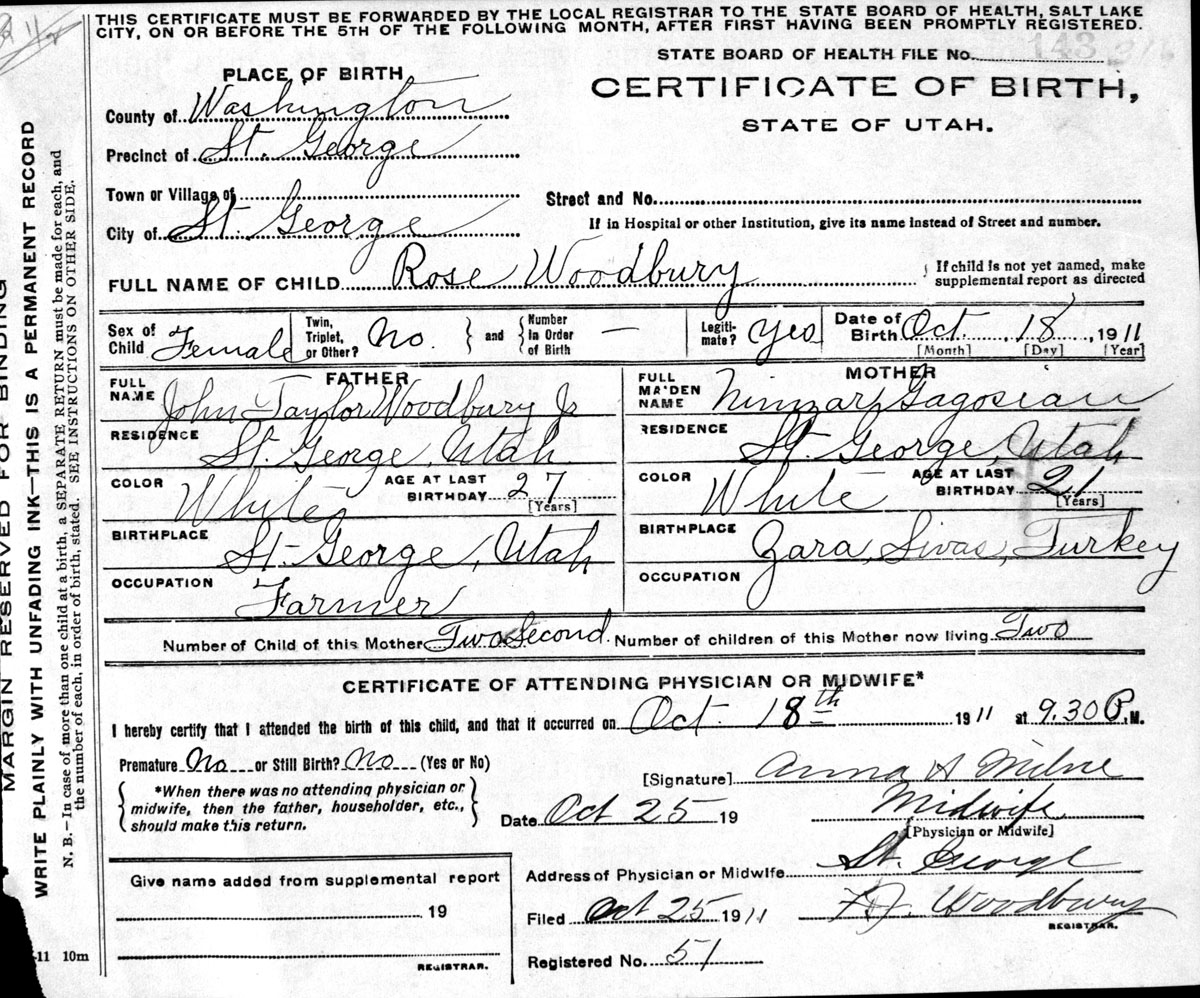 THIS CERTIFICATE MUST BE FORWARDED BY THE LOCAL REGISTRAR TO THE STATE BOARD OF HEALTH, SALT LAKE
CITY, ON OR BEFORE THE 5TH OF THE FOLLOWING MONTH, AFTER FIRST HAVING BEEN PROMPTLY REGISTERED.
STATE BOARD OF HEALTH FILE No. 143
PLACE OF BIRTH
CERTIFICATE OF BIRTH,
STATE OF UTAH.
County of Washington
Precinct of St. George
Town or Village of
Street and No.
City of St George
If in Hospital or other Institution, give its name instead of Street and number.
FULL NAME OF CHILD Rose Woodbury
If child is not yet named, make
supplemental report as directed
Sex of Child Female
Twin, Triplet, or Other? No.
and
Number In Order of Birth —
Legiti-mate? Yes
Date of Birth Oct. 18, 1911
[Month] [Day] [Year]
FATHER
FULL NAME John Taylor Woodbury Jr
RESIDENCE St. George, Utah
COLOR White
AGE AT LAST BIRTHDAY 27
[Years]
BIRTHPLACE St. George, Utah
OCCUPATION Farmer
MOTHER
FULL MAIDEN NAME Gagosian
RESIDENCE St. George, Utah
COLOR White
AGE AT LAST BIRTHDAY 21
[Years]
BIRTHPLACE Zara, Sivas, Turkey
OCCUPATION
Number of Child of this Mother Two Second. Number of children of this Mother now living Two
CERTIFICATE OF ATTENDING PHYSICIAN OR MIDWIFE*
I hereby certify that I attended the birth of this child, and that it occurred on Oct. 18th 1911 at 9.30 P.M.
Premature No or Still Birth? No (Yes or No)
*When there was no attending physician or
midwife, then the father, householder, etc.,
should make this return.
[Signature] Anna A Milne
Date Oct 25 19
Midwife
[Physician or Midwife]
Address of Physician or Midwife St. George
Give name added from supplemental report
19
REGISTRAR.
Filed Oct 25 1911
F. J. Woodbury
REGISTRAR.
Registered No. 51
11 10m
MARGIN RESERVED FOR BINDING
WRITE PLAINLY WITH UNFADING INK—THIS IS A PERMANENT RECORD
N. B.—In case of more than one child at a birth, a SEPARATE RETURN must be made for each, and
the number of each, in order of birth, stated. SEE INSTRUCTIONS ON OTHER SIDE.